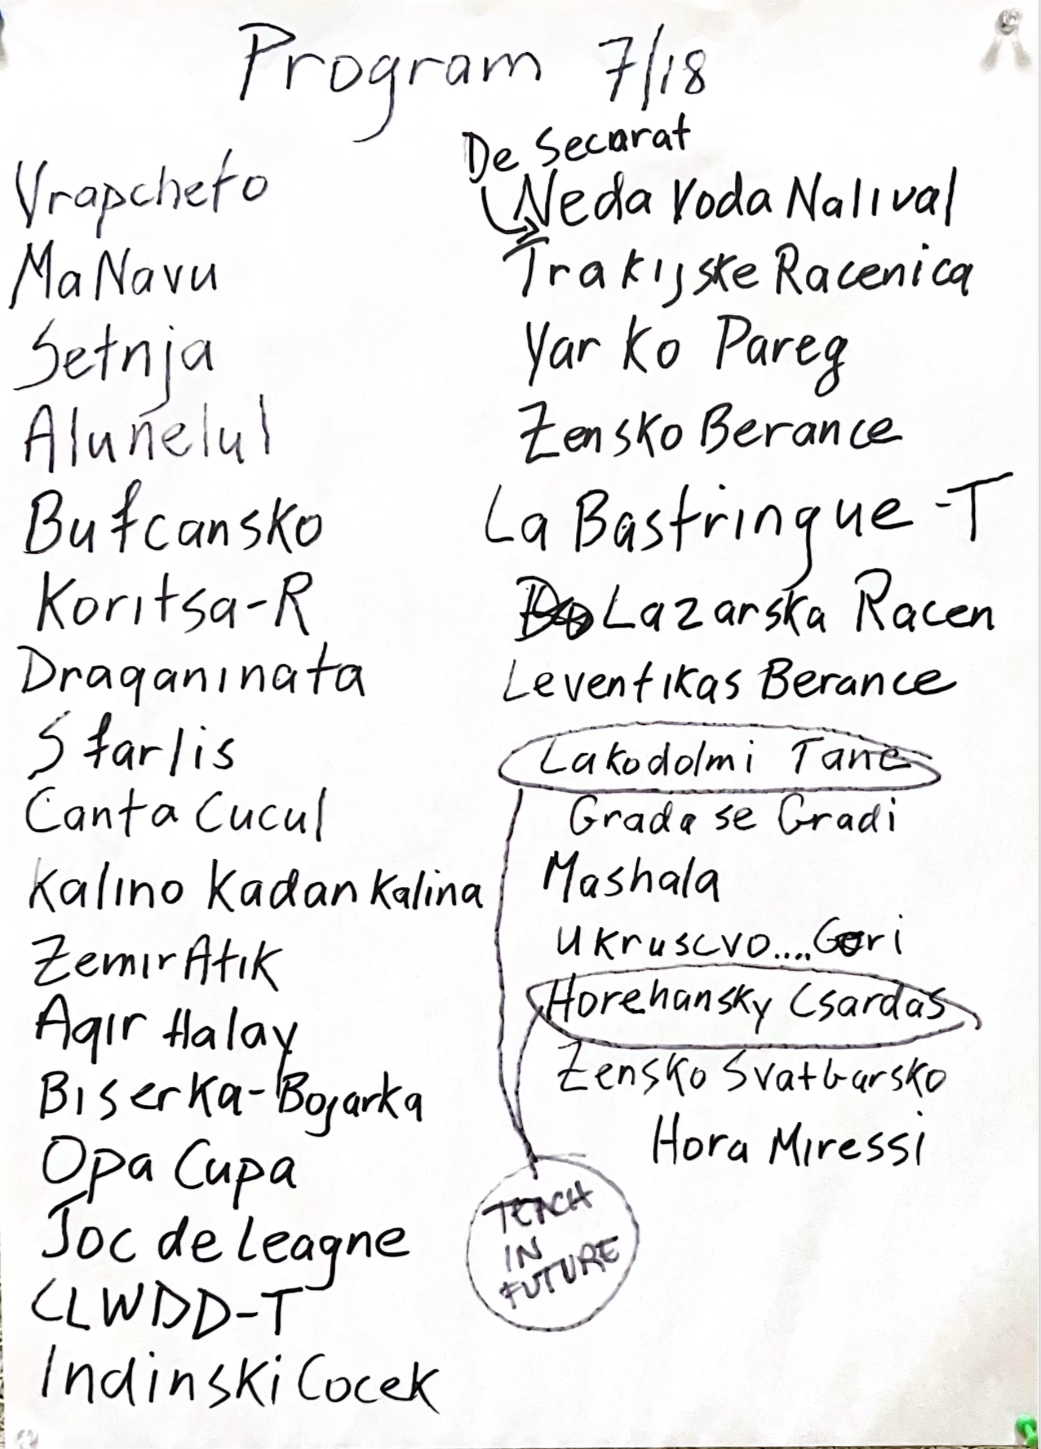 Program 7/18
Vrapcheto
Ma Navu
Setnja
Alunelul
Bufcansko
Koritsa-R
Draganinata
Starlis
Canta Cucul
Kalino Kadan Kalina
Zemir Atik
Agir Halay
Biserka-Bojarka
Opa Cupa
Joc de Leagne
CLWDD-T
Indinski Cocek
De Secarat
Neda Voda Nalival
Trakijske Racenica
Yar Ko Pareg
Zensko Berance
La Bastringue -T
Lazarska Racen
Leventikas Berance
Lakodolmi Tanc
Grada se Gradi
Mashala
Ukruscvo....Gori
Horehansky Csardas
Zensko Svatbarsko
Hora Miressi
TEACH
IN
FUTURE